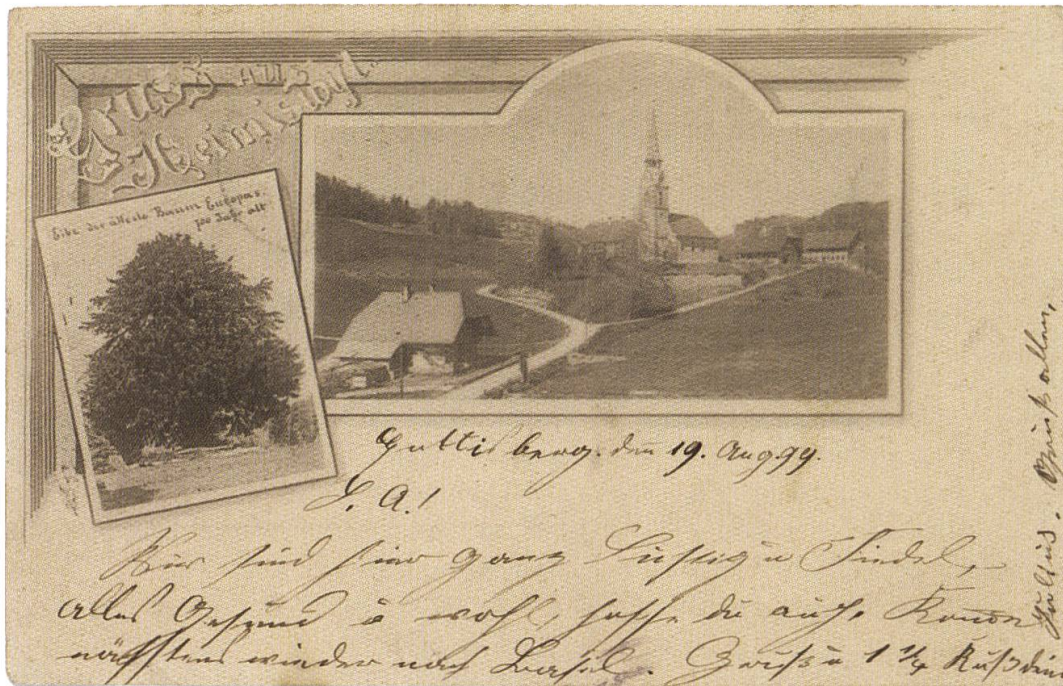 Gruss aus
Heimiswyl.
Eibe der älteste Baum Europas.
700 Jahr alt
Guttisberg. den 19. Aug 99.
L. A.!
Wir sind hier ganz Lustig u Fidel,
alles Gesund u wohl, hoffe du auch. Komme
nächstens wieder nach Basel. Gruß u 1 ¼ Kuß dein
Julius. Gruß allen,